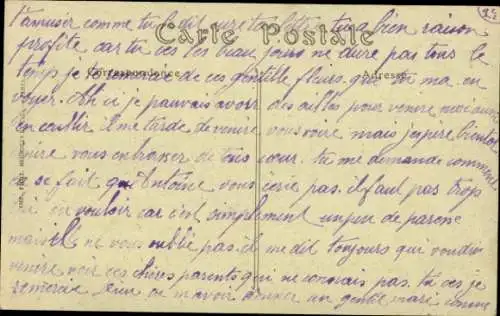 t'amuser comme tu le dit sure ta lettre tu a bien raison
Carte Postale
profite car tu ces les beau jours ne dure pas tous le
temps je te remercie de ces gentille fleurs que tu ma en
Correspondance
Adresse
voyer. Ah si je pouvais avoir des ailes pour venire moi aussi
en cueillir il me tarde de venire vous voire mais j'espire bientot
venire vous embrasser de tous cœur. tu me demande comment
ce se fait que Antoine vous écrie pas. il faut pas trop
lui en vouloir car c'est simplement un peu de parese
mais il ne vous oublie pas. il me dit toujours qui voudrai
venire voir ces chères parents qui ne connais pas. tu ces je
remercie bien de m'avoir donner un gentil mari comme